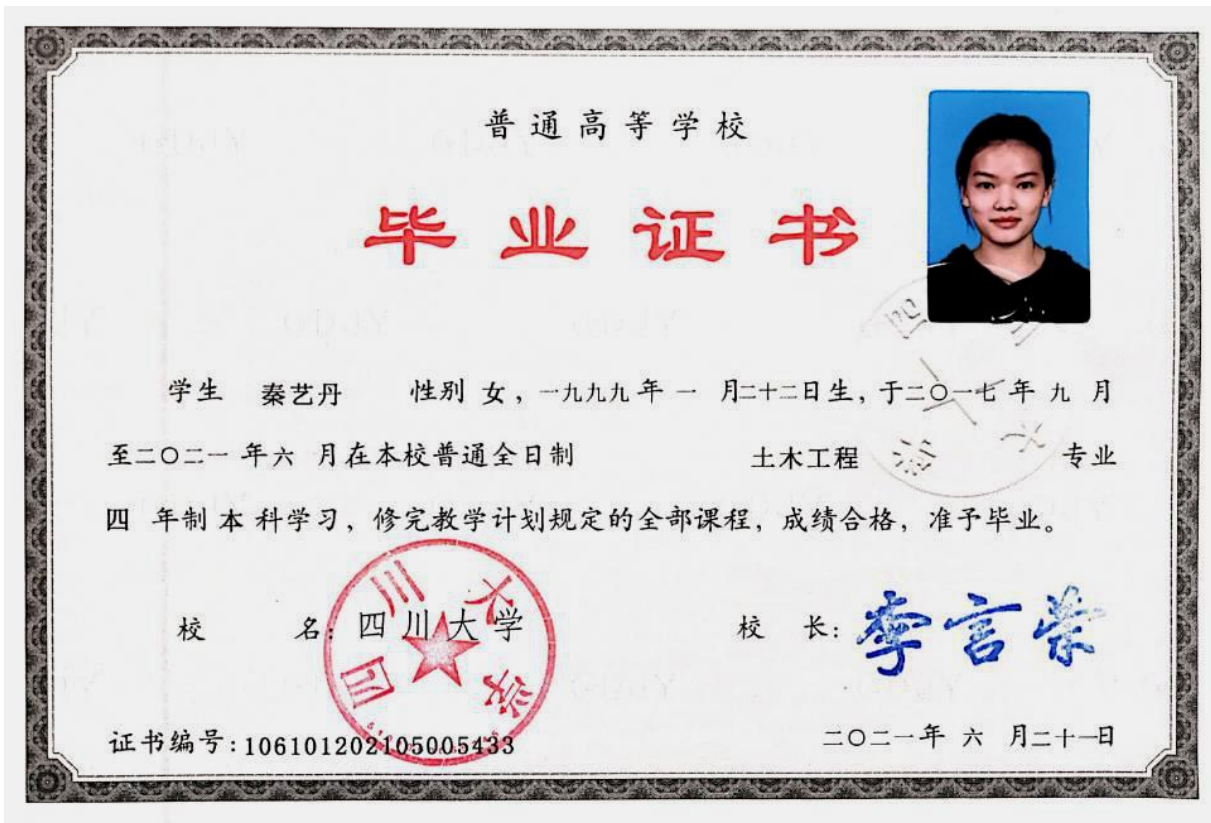 普通高等学校
毕业证书
学生 秦艺丹 性别 女，一九九九年 一 月二十二日生，于二〇一七年 九 月
至二〇二一 年六 月在本校普通全日制 土木工程 专业
四 年制 本 科学习，修完教学计划规定的全部课程，成绩合格，准予毕业。
校 名：四川大学
校 长：李言荣
证书编号：106101202105005433
二〇二一年 六 月二十一日
四川大学
四川大学